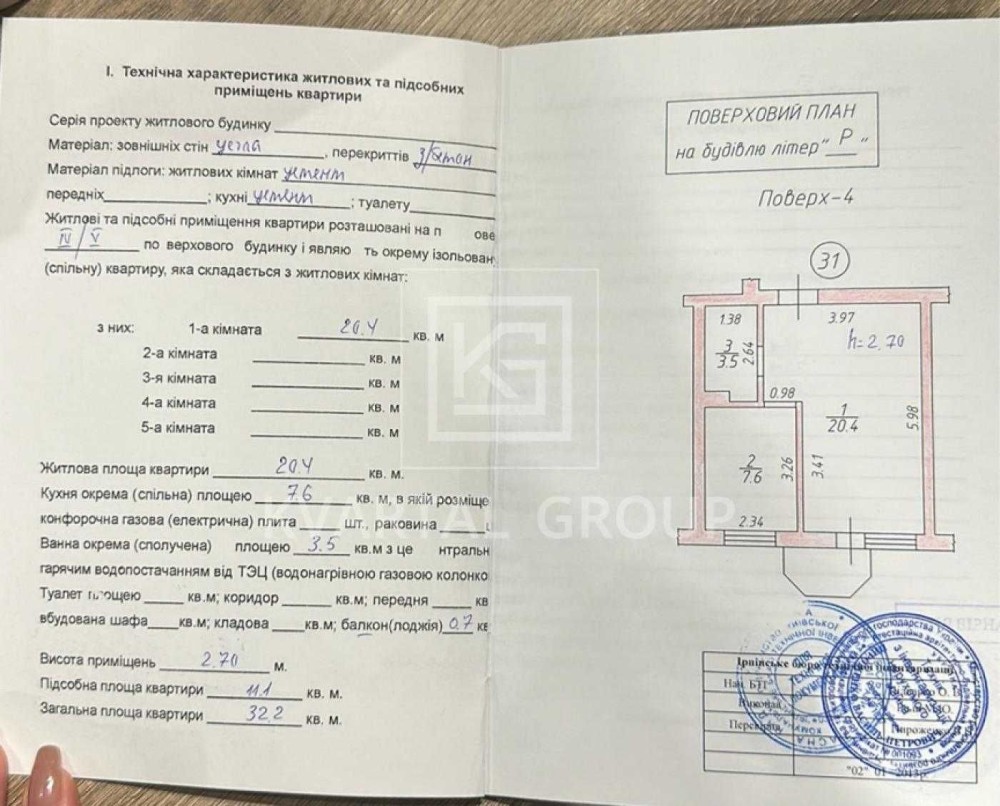 І. Технічна характеристика житлових та підсобних
приміщень квартири
Серія проекту житлового будинку
Матеріал: зовнішніх стін цегла, перекриттів з/бетон
Матеріал підлоги: житлових кімнат цемент
передніх; кухні цемент; туалету
Житлові та підсобні приміщення квартири розташовані на п ове
IV/V по верхового будинку і являю ть окрему ізольован
(спільну) квартиру, яка складається з житлових кімнат:
з них: 1-а кімната 20.4 кв. м
2-а кімната кв. м
3-я кімната кв. м
4-а кімната кв. м
5-а кімната кв. м
Житлова площа квартири 20.4 кв. м.
Кухня окрема (спільна) площею 7.6 кв. м, в якій розміще
конфорочна газова (електрична) плита шт., раковина
Ванна окрема (сполучена) площею 3.5 кв.м з це нтральн
гарячим водопостачанням від ТЭЦ (водонагрівною газовою колонко
Туалет площею кв.м; коридор кв.м; передня кв
вбудована шафа кв.м; кладова кв.м; балкон(лоджія) 0.7 кв
Висота приміщень 2.70 м.
Підсобна площа квартири 11.1 кв. м.
Загальна площа квартири 32.2 кв. м.
KVARTAL GROUP
ПОВЕРХОВИЙ ПЛАН
на будівлю літер "Р"
Поверх-4
31
1.38 3.97
h=2.70
3/3.5 2.64
0.98
1/20.4 5.98
2/7.6 3.26 3.41
2.34
Ірпінське бюро технічної інвентаризації
Нач. БТІ
Виконав
Перевірив
"02" 01 2013р.